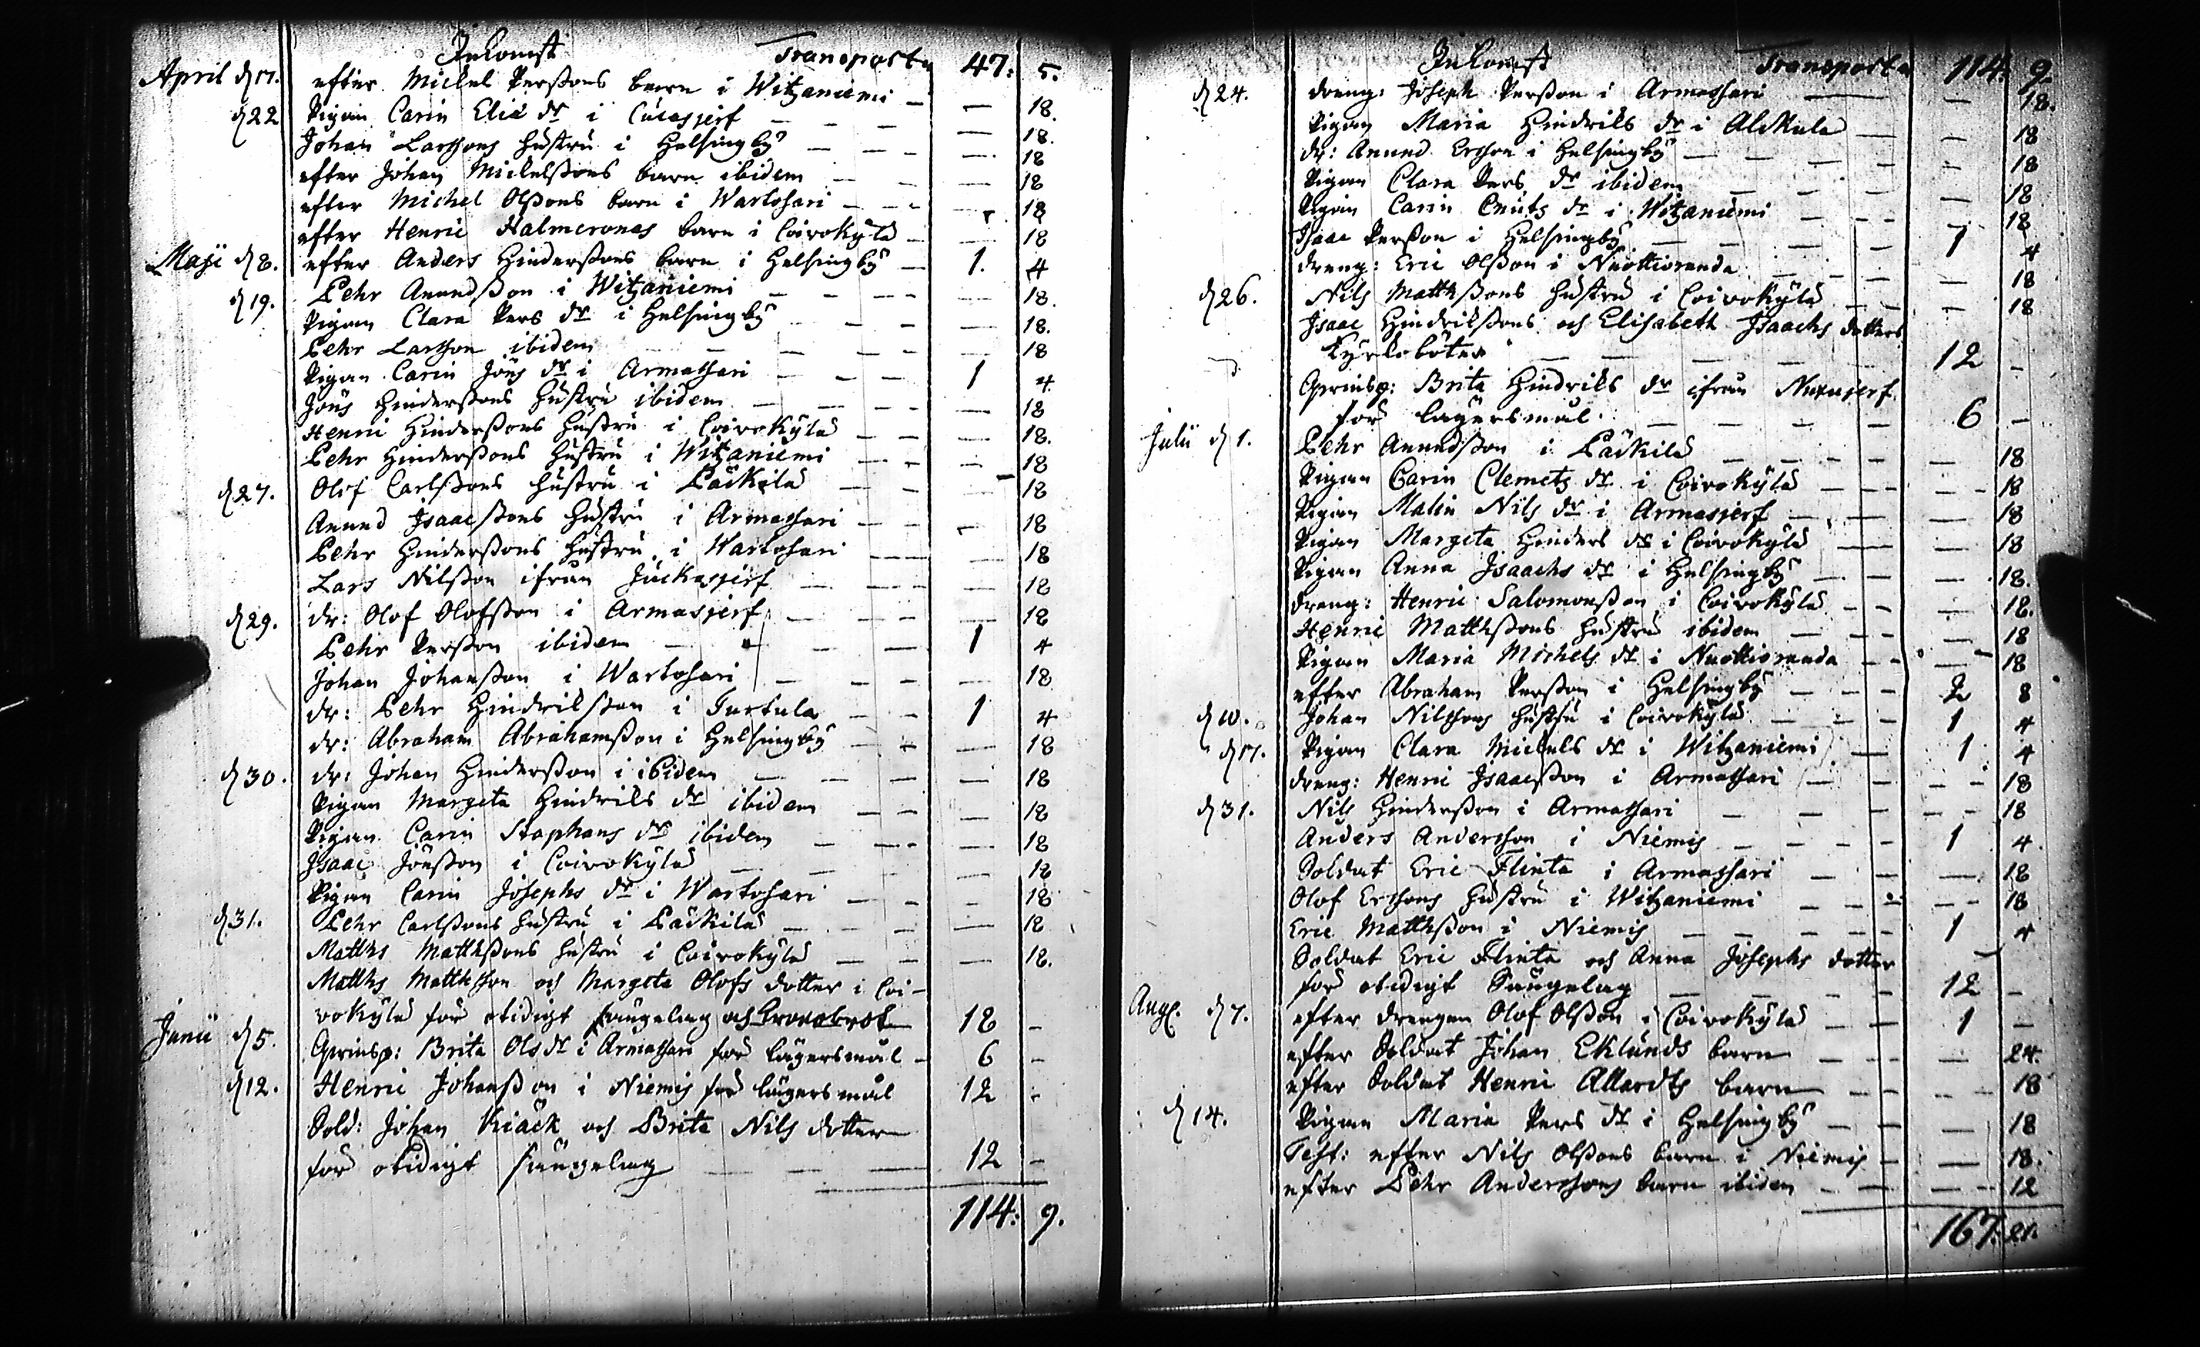 Inkomst Transporte 47: 5.
April d 17. efter Michel Perßons barn i Witzaniemi — — 18.
d 22 Pigan Carin Eliæ dr i Cuiasjerf — — 18.
Johan Larssons hustru i Helsingby — — 18
efter Johan Mickelßons barn ibidem — — 18
efter Michel Olßons barn i Wartosari — — 18
efter Henric Halmeronas barn i Coivokylä — — 18
Maji d 8. efter Anders Hinderßons barn i Helsingby — 1. 4
d 19. Pehr Anundßon i Witzaniemi — — 18.
Pigan Clara Pers dr i Helsingby — — 18.
Pehr Larsson ibidem — — 18
Pigan Carin Jöns dr i Armassari — 1 4
Jöns Hinderßons hustru ibidem — — 18
Henric Hinderßons hustru i Coivokylä — — 18.
Pehr Hinderßons hustru i Witzaniemi — — 18
d 27. Olof Carlßons hustru i Päckilä — — 18
Anund Isaacßons hustru i Armassari — — 18
Pehr Hinderßons hustru i Wartosari — — 18
Lars Nilßon ifrån Juckasjerf — — 18
d 29. dr: Olof Olofßon i Armasjerf — — 18
Pehr Perßon ibidem — 1 4
Johan Johanßon i Wartosari — — 18
dr: Pehr Hindrikßon i Turtula — 1 4
dr: Abraham Abrahamßon i Helsingby — — 18
d 30. dr: Johan Hinderßon i ibidem — — 18
Pigan Margeta Hindriks dr ibidem — — 18
Pigan Carin Staphans dr ibidem — — 18
Isaac Jönßon i Coivokylä — — 18
Pigan Carin Josephs dr i Wartosari — — 18
d 31. Pehr Carlßons hustru i Päckilä — — 18
Matths Matthßons hustru i Coivokylä — — 18.
Matths Matthsson och Margeta Olofs dotter i Coi-
vokylä för otidigt sängelag och 18 -
Junii d 5. Qwinsp: Brita Ols dr i Armassari för lägersmål — 6 -
d 12. Henric Johanßon i Niemis för lägersmål 12 -
Sold: Johan Kiäck och Brita Nils dotter
för otidigt sängelag — 12 -
114: 9.
Inkomst Transporte 114: 9.
d 24. dreng: Joseph Perßon i Armassari — — 18.
Pigan Maria Hindriks dr i Alckula — — 18
dr: Anund Ersson i Helsingby — — 18
Pigan Clara Pers dr ibidem — — 18
Pigan Carin Cnuts dr i Witzaniemi — — 18
Isaac Perßon i Helsingby — 1 4
dreng: Eric Olßon i Nuottioranda — — 18
d 26. Nils Matthßons hustru i Coivokylä — — 18
Isaac Hindrikßons och Elisabeth Isaachs dotters
Kyrkoböter — 12 -
Qwinsp: Brita Hindriks dr ifrån
för lägersmål — 6 -
Julii d 1. Pehr Anundßon i Päckilä — — 18
Pigan Carin Clemets dr i Coivokylä — — 18
Pigan Malin Nils dr i Armasjerf — — 18
Pigan Margeta Hinders dr i Coivokylä — — 18
Pigan Anna Isaachs dr i Helsingby — — 18.
dreng: Henric Salomonßon i Coivokylä — — 18.
Henric Matthßons hustru ibidem — — 18
Pigan Maria Michels dr i Nuottioranda — — 18
efter Abraham Perßon i Helsingby — 2 8
d 10. Johan Nilssons hustru i Coivokylä — 1 4
d 17. Pigan Clara Mickels dr i Witzaniemi — 1 4
dreng: Henric Isaacßon i Armassari — — 18
d 31. Nils Hinderßon i Armassari — — 18
Anders Andersson i Niemis — 1 4.
Soldat Eric Flinta i Armassari — — 18
Olof Erssons hustru i Witzaniemi — — 18
Eric Matthßon i Niemis — 1 4
Soldat Eric Flinta och Anna Josephs dotter
för otidigt Sängelag — 12 -
Aug. d 7. efter drengen Olof Olßon i Coivokylä — 1 —
efter Soldat Johan Eklunds barn — — 24.
efter Soldat Henric Allardts barn — — 18
d 14. Pigan Maria Pers dr i Helsingby — — 18
Test: efter Nils Olßons barn i Niemis — — 18.
efter Pehr Anderssons barn ibidem — — 12
167: 21.